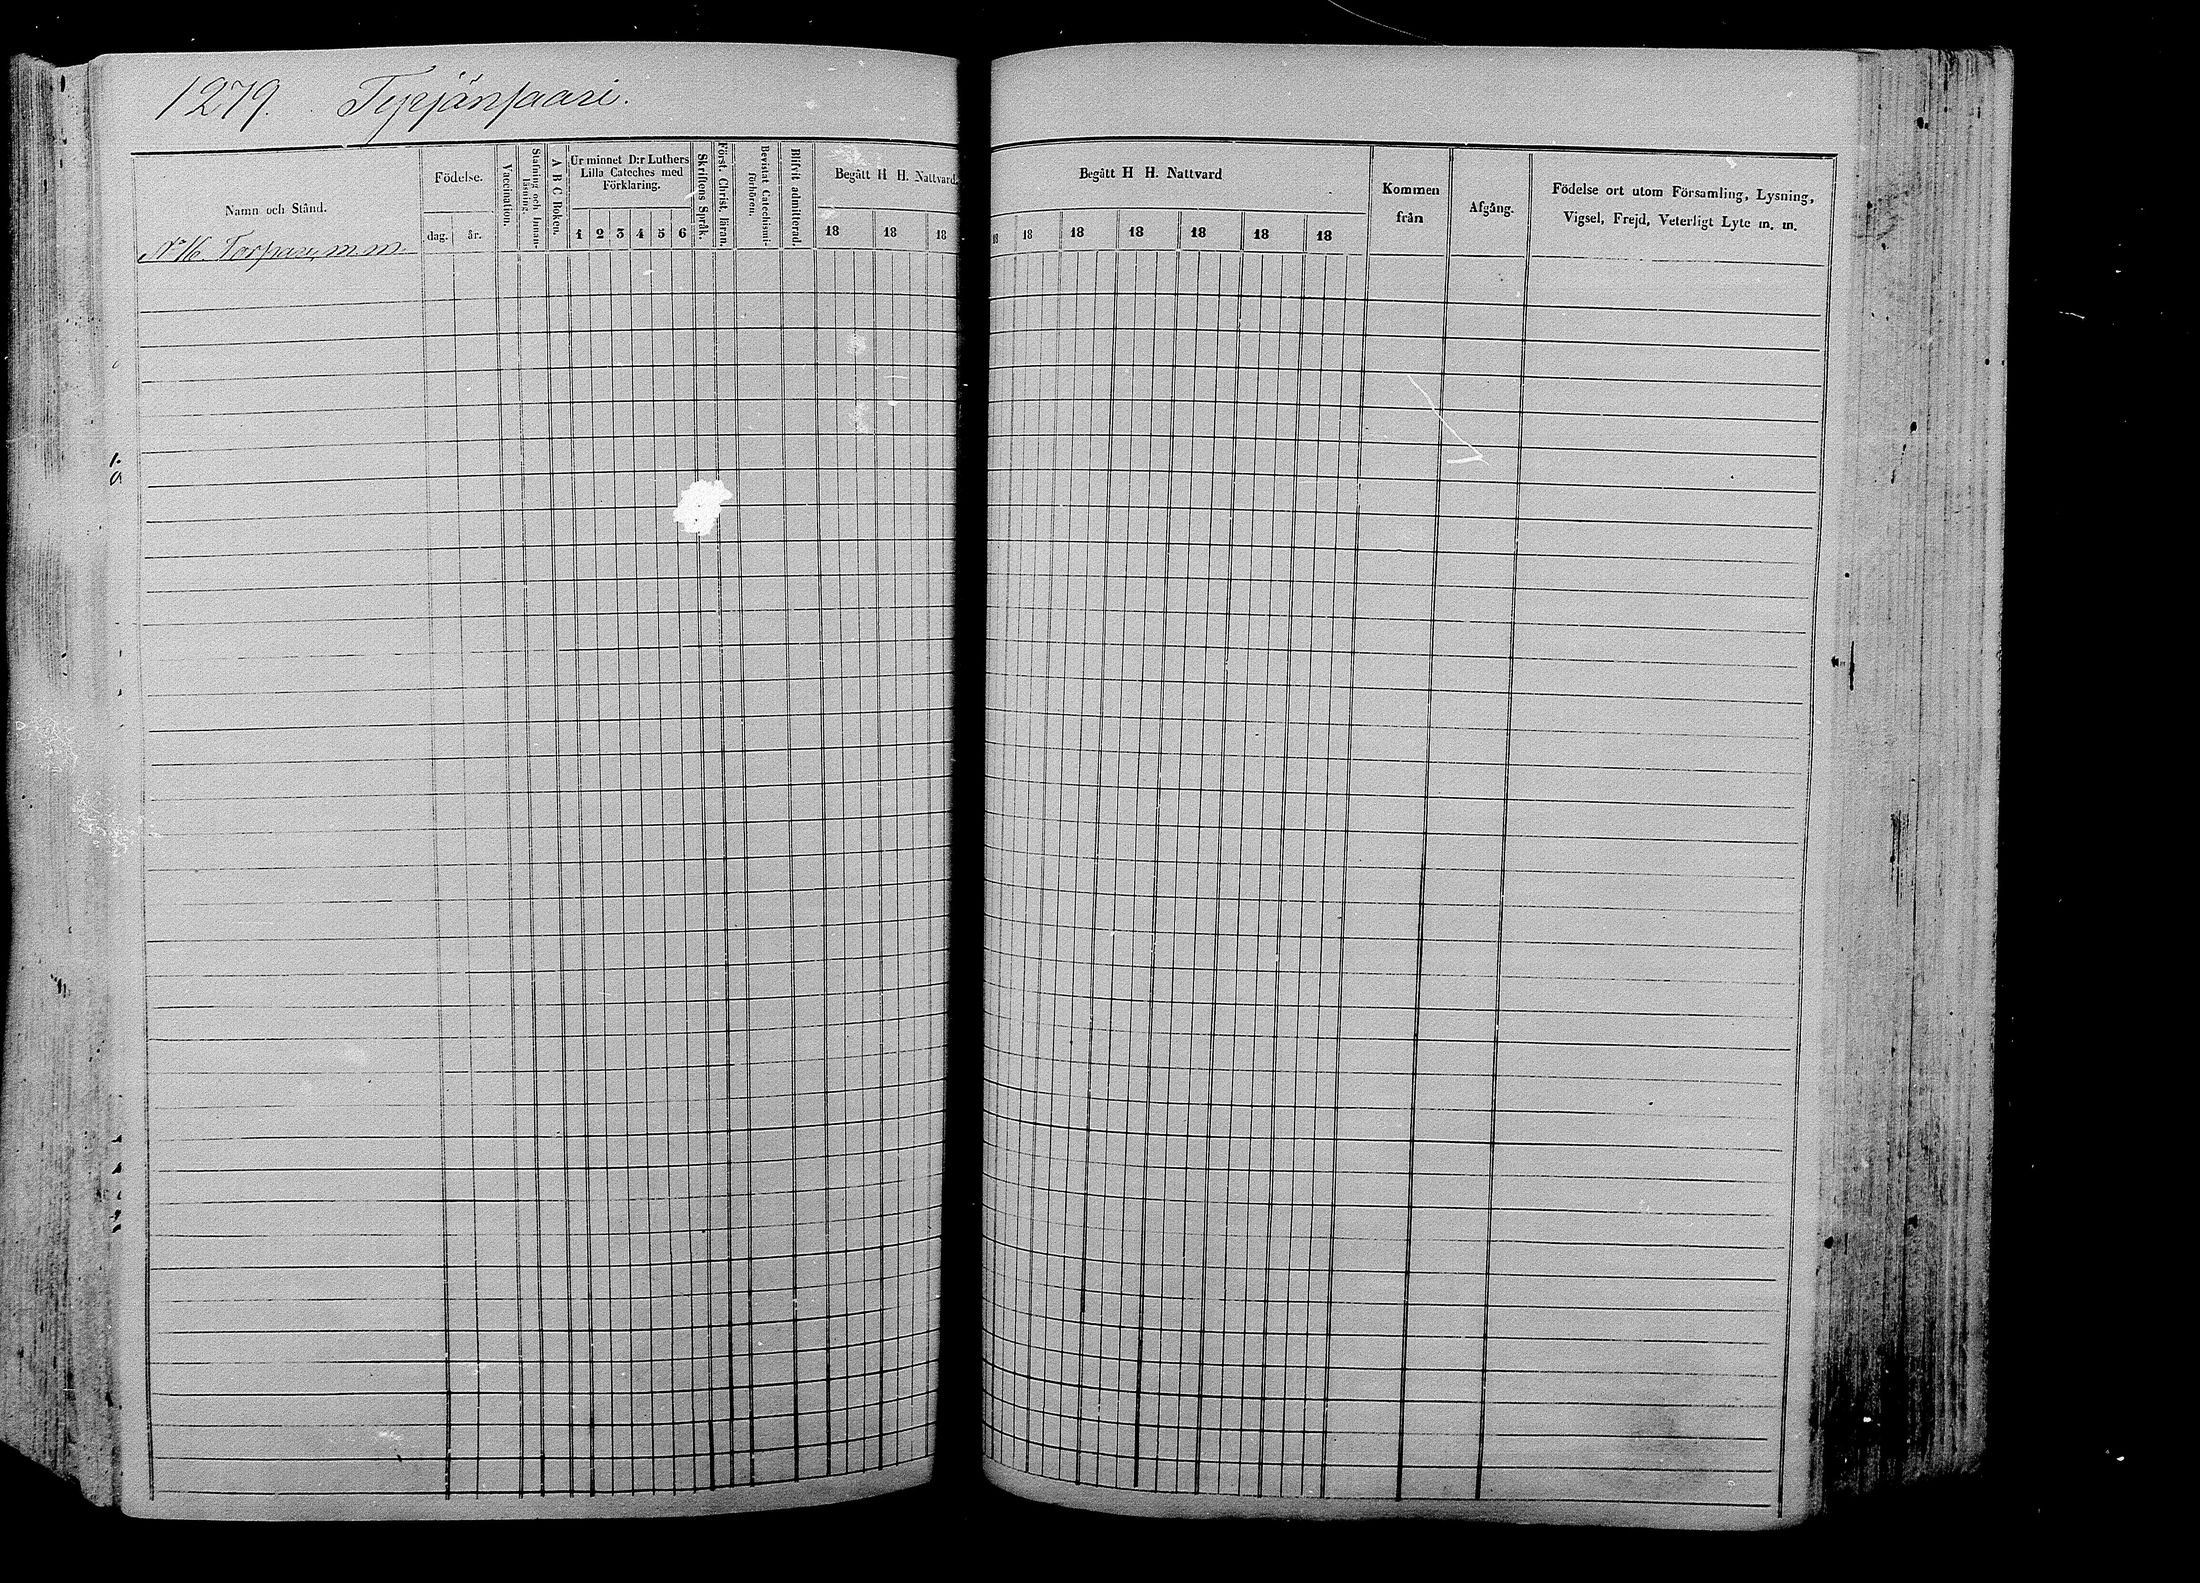 1279. Tyrjänsaari.
Namn och Stånd.
Födelse.
dag.
år.
Vaccination.
Stafning och Innan-
läsning.
A B C Boken.
Ur minnet D:r Luthers
Lilla Cateches med
Förklaring.
1 2 3 4 5 6
Skriftens Språk.
Först. Christ. läran.
Bevistat Catechismi-
förhören.
Blifvit admitterad.
Begått H H. Nattvard.
18 18 18
Nº 16. m. m.
Begått H H. Nattvard
18 18 18 18 18 18 18
Kommen
från
Afgång.
Födelse ort utom Församling, Lysning,
Vigsel, Frejd, Veterligt Lyte m. m.